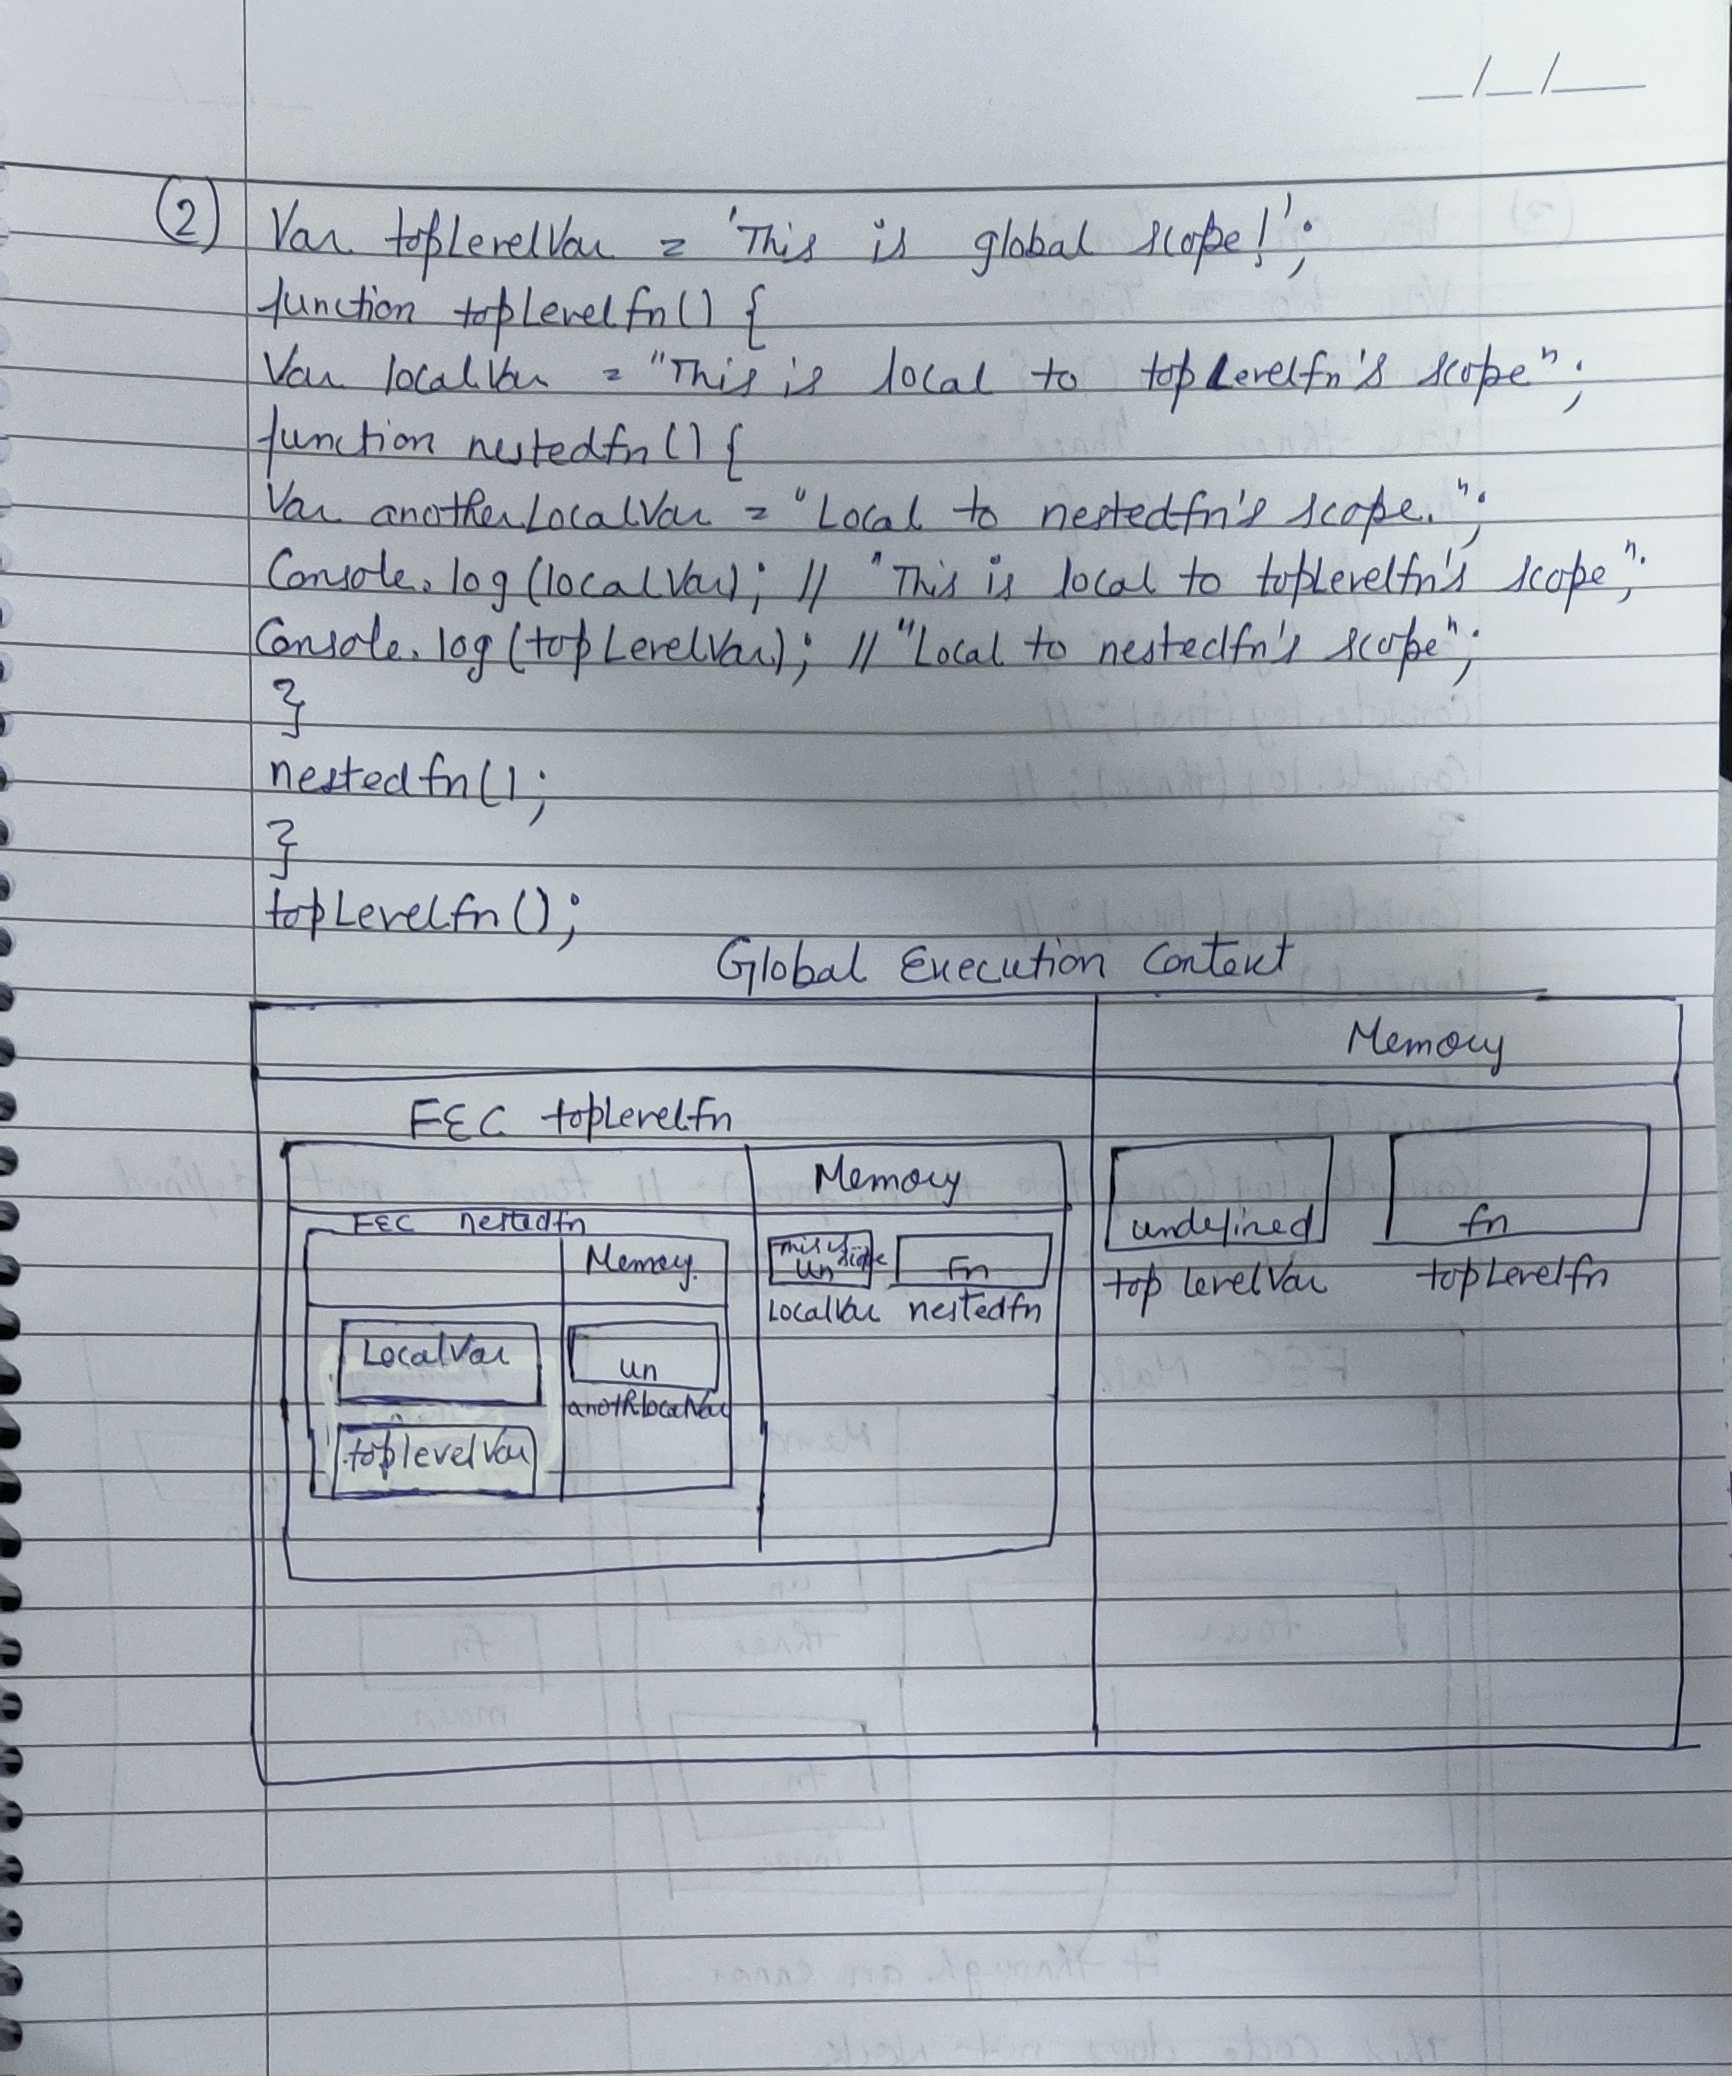 _/_/__
(2) Var topLevelVar = 'This is global scope!';
function topLevelfn() {
Var localVar = "This is local to topLevelfn's scope";
function nestedfn() {
Var anotherLocalVar = "Local to nestedfn's scope.";
Console.log(localVar); // "This is local to topLevelfn's scope";
Console.log(topLevelVar); // "Local to nestedfn's scope";
}
nestedfn();
}
topLevelfn();
Global Execution Context
Memory
FEC topLevelfn
Memory
FEC nestedfn
Memory
This is scope
un
Fn
undefined
fn
LocalVar nestedfn
top levelVar topLevelfn
LocalVar
un
anothlocalVar
toplevelVar